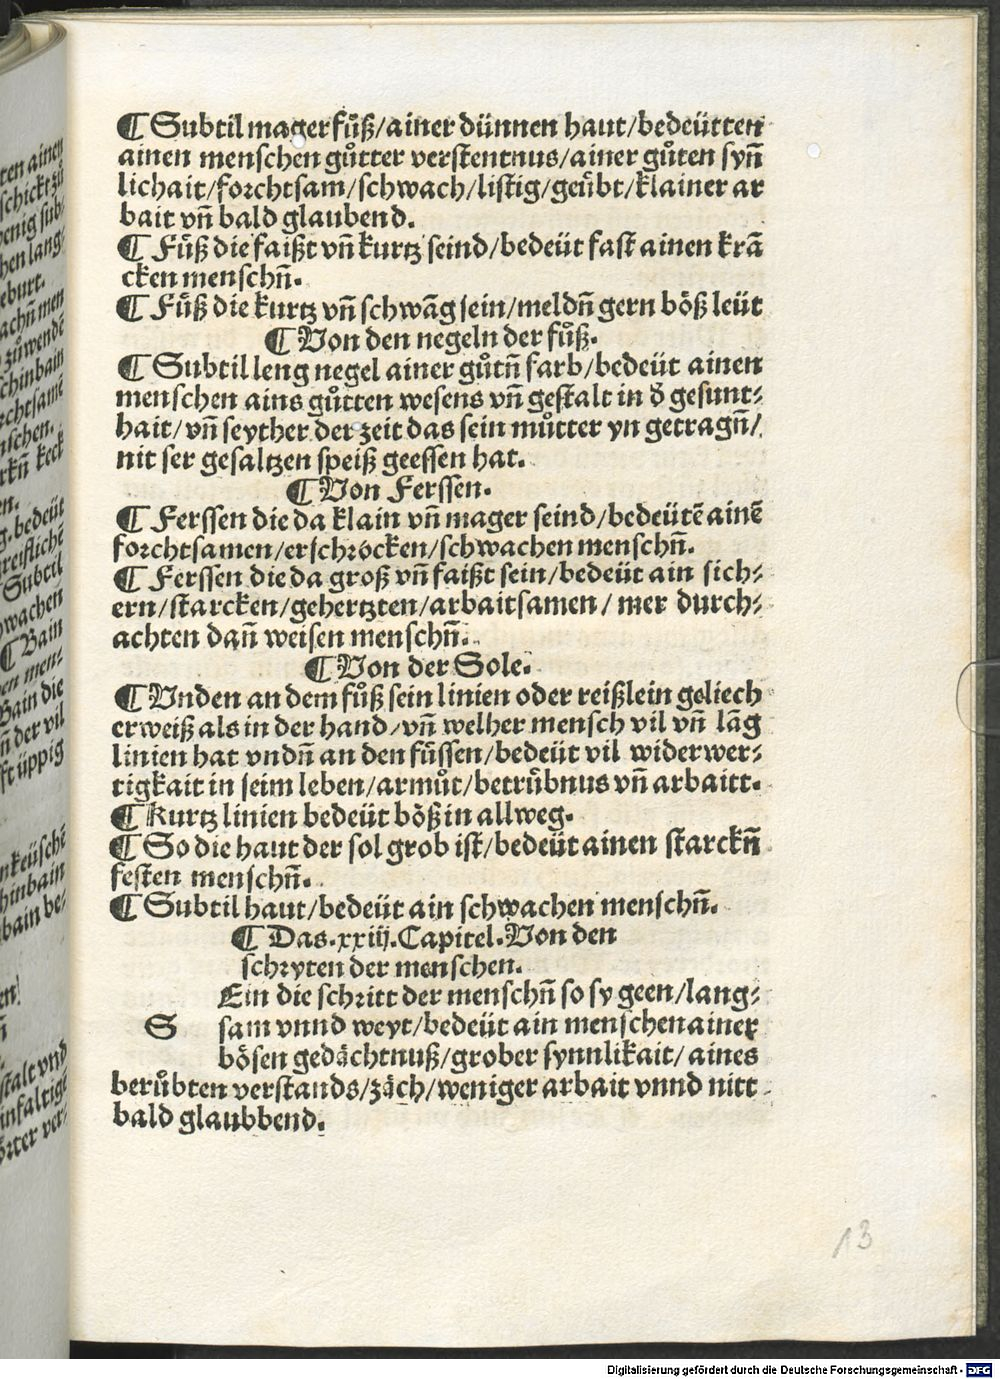 ¶ Subtil mager fuͤß/ainer dünnen haut/bedeütten
ainen menschen guͦtter verstentnus/ainer guͦten syñ
lichait/forchtsam/schwach/listig/geuͤbt/klainer ar
bait vñ bald glaubend.
¶ Fuͤß die faißt vñ kurtz seind/bedeüt fast ainen krā
cken menschñ.
¶ Fuͤß die kurtz vñ schwāg sein/meldñ gern böß leüt
¶ Von den negeln der fuͤß.
¶ Subtil leng negel ainer guͦtñ farb/bedeüt ainen
menschen ains guͦtten wesens vñ gestalt in d̄ gesunt⸗
hait/vñ seyther der zeit das sein muͦtter yn getragñ/
nit ser gesaltzen speiß geessen hat.
¶ Von Ferssen.
¶ Ferssen die da klain vñ mager seind/bedeütē ainē
forchtsamen/erschrocken/schwachen menschñ.
¶ Ferssen die da groß vñ faißt sein/bedeüt ain sich⸗
ern/starcken/gehertzten/arbaitsamen/ mer durch⸗
achten dañ weisen menschñ.
¶ Von der Sole.
¶ Vnden an dem fuͦß sein linien oder reißlein geliech
erweiß als in der hand/vñ welher mensch vil vñ lāg
linien hat vndñ an den fuͤssen/bedeüt vil widerwer⸗
tigkait in seim leben/armuͦt/betruͤbnus vñ arbaitt.
¶ Kurtz linien bedeüt böß in allweg.
¶ So die haut der sol grob ist/bedeüt ainen starckñ
festen menschñ.
¶ Subtil haut/bedeüt ain schwachen menschñ.
¶ Das.xxiij.Capitel.Von den
schryten der menschen.
Ein die schritt der menschñ so sy geen/lang⸗
S sam vnnd weyt/bedeüt ain menschen ainer
bösen gedächtnuß/grober synnlikait/ aines
beruͤbten verstands/zäch/weniger arbait vnnd nitt
bald glaubbend.
13
Digitalisierung gefördert durch die Deutsche Forschungsgemeinschaft - DFG